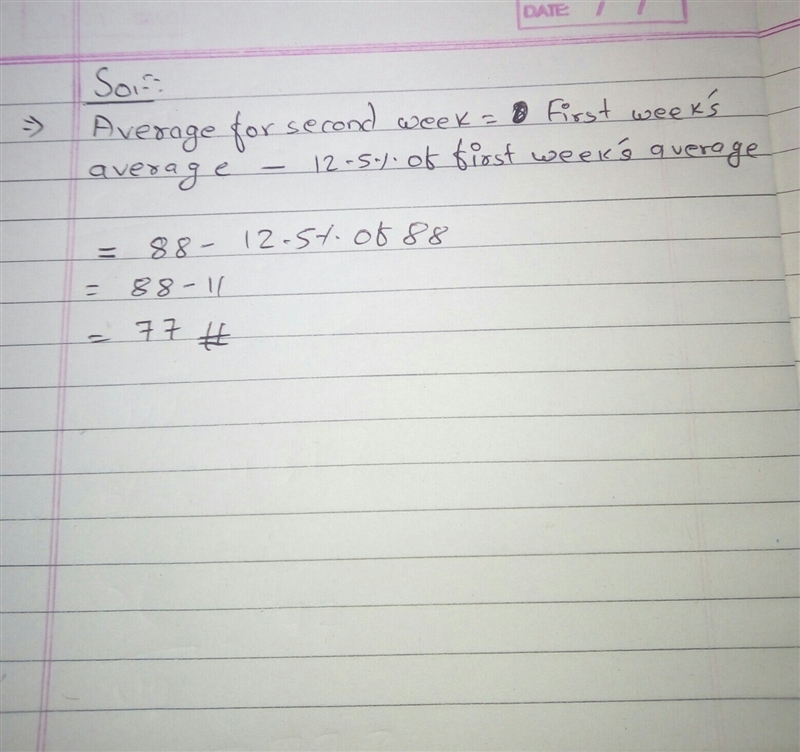 DATE: / /
Soln:
⇒ Average for second week = First week's
average - 12.5% of first week's average
= 88 - 12.5% of 88
= 88 - 11
= 77 #